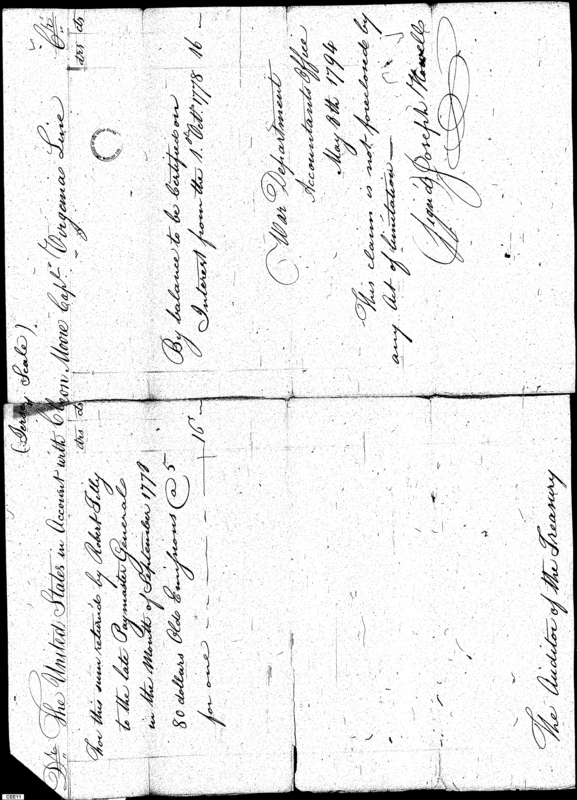 (Jersey Scale)
Dr. The United States in Account with Cleon Moore Capt. Virginias Line Cr.
drs cts
drs cts
For this sum returned by Robert Tilly
to the late Paymaster General
in the Month of September 1778
80 dollars Old Emissions @ 5
for one - - - - - - - 16 -
By balance to be Certified on
Interest from the 1st Octr. 1778 16 -
War Department
Accountants Office
May 8th 1794
This claim is not foreclosed by
any Act of limitation -
Sign'd Joseph Howell
The Auditor of the Treasury
CEE11